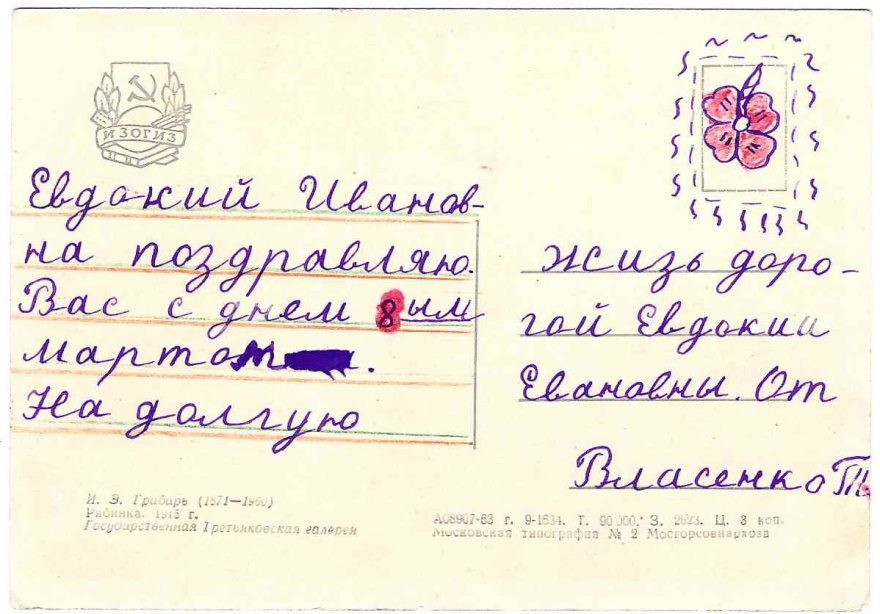 ИЗОГИЗ
Евдокий Иванов-
на поздравляю.
Вас с днем 8ым
мартом
На долгую
жизь доро-
гой Евдокии
Евановны. От
Власенко Т.
И. Э. Грабарь (1871—1960)
Рябинка. 1915 г.
Государственная Третьяковская галерея
А08907-63 г. 9-1634. Т. 90 000. З. 2623. Ц. 3 коп.
Московская типография № 2 Мосгорсовнархоза